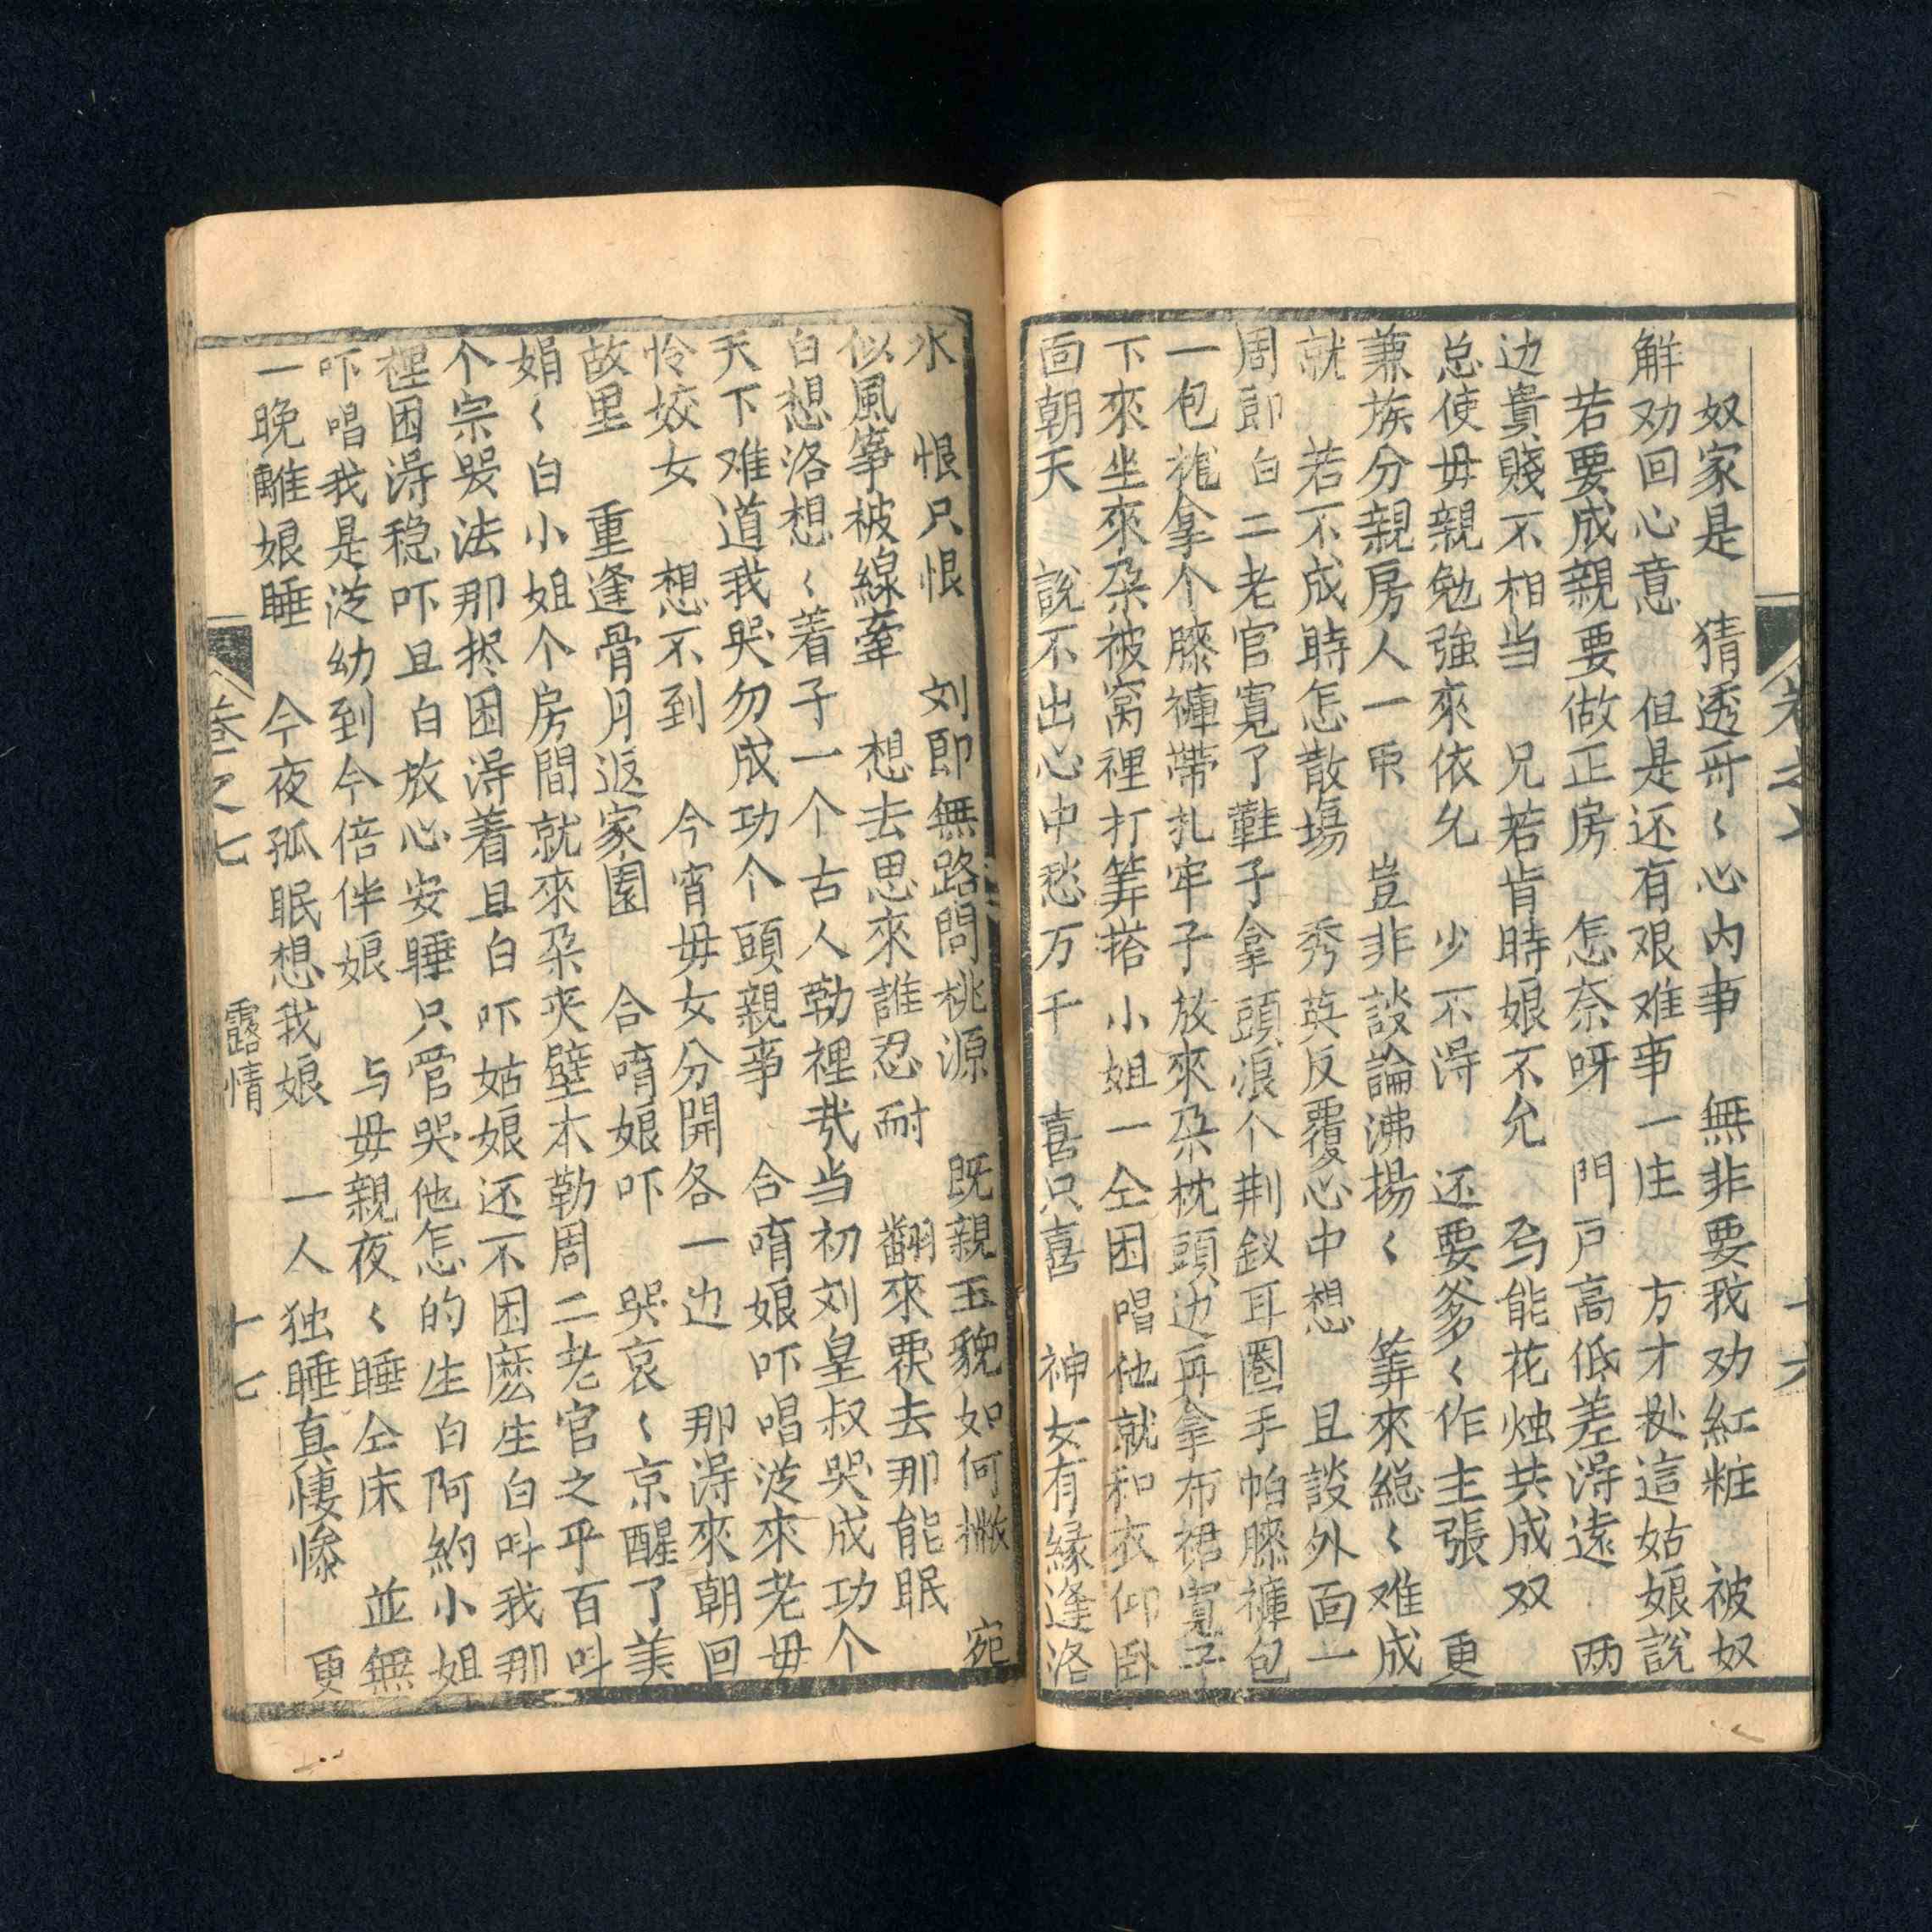 奴家是　猜透哥〱心内事　無非要我劝紅粧　被奴
解劝回心意　但是还有艰难事一庄　方才赴這姑娘說
若要成親要做正房　怎奈呀　門戸高低差淂遠　両
边貴賤不相当　兄若肯時娘不允　烏能花烛共成双
总使毋親勉強來依允　少不淂　还要爹〱作主張　更
兼族分親房人一帀　豈非談論沸揚〱　筭來総〱难成
就　若不成時怎散塲　秀英反覆心中想　且談外面一
周郎白二老官寛了鞋子拿頭浪个荆釵耳圈手帕膝褲包
一包攏拿个膝褲帶扎牢子放來朶枕頭边再拿布裙寛子
下來坐來朶被窝裡打筭搭小姐一仝困唱他就和衣仰臥
面朝天　說不出心中愁万千　喜只喜　神女有縁逢洛
水　恨只恨　刘郎無路問桃源　既親玉貌如何撇　宛
似風箏被線牽　想去思來誰忍耐　翻來覆去那能眠
白想洛想〱着子一个古人勒裡哉当初刘皇叔哭成功个
天下难道我哭勿成功个頭親事　合唷娘吓唱泼來老毋
怜姣女　想不到　今宵毋女分開各一边　那淂來朝回
故里　重逢骨月返家園　合唷娘吓　哭哀〱京醒了美
娟〱白小姐个房間就來朶夹壁本勒周二老官之乎百叫
个宗哭法那捺困淂着且白吓姑娘还不困麽生白叫我那
裡困淂稳吓且白放心安睡只管哭他怎的生白阿約小姐
吓唱我是泼幼到今倍伴娘　与毋親夜〱睡仝床　並無
一晩離娘睡　今夜孤眠想我娘　一人独睡真悽慘　更
卷之七　露情　十七